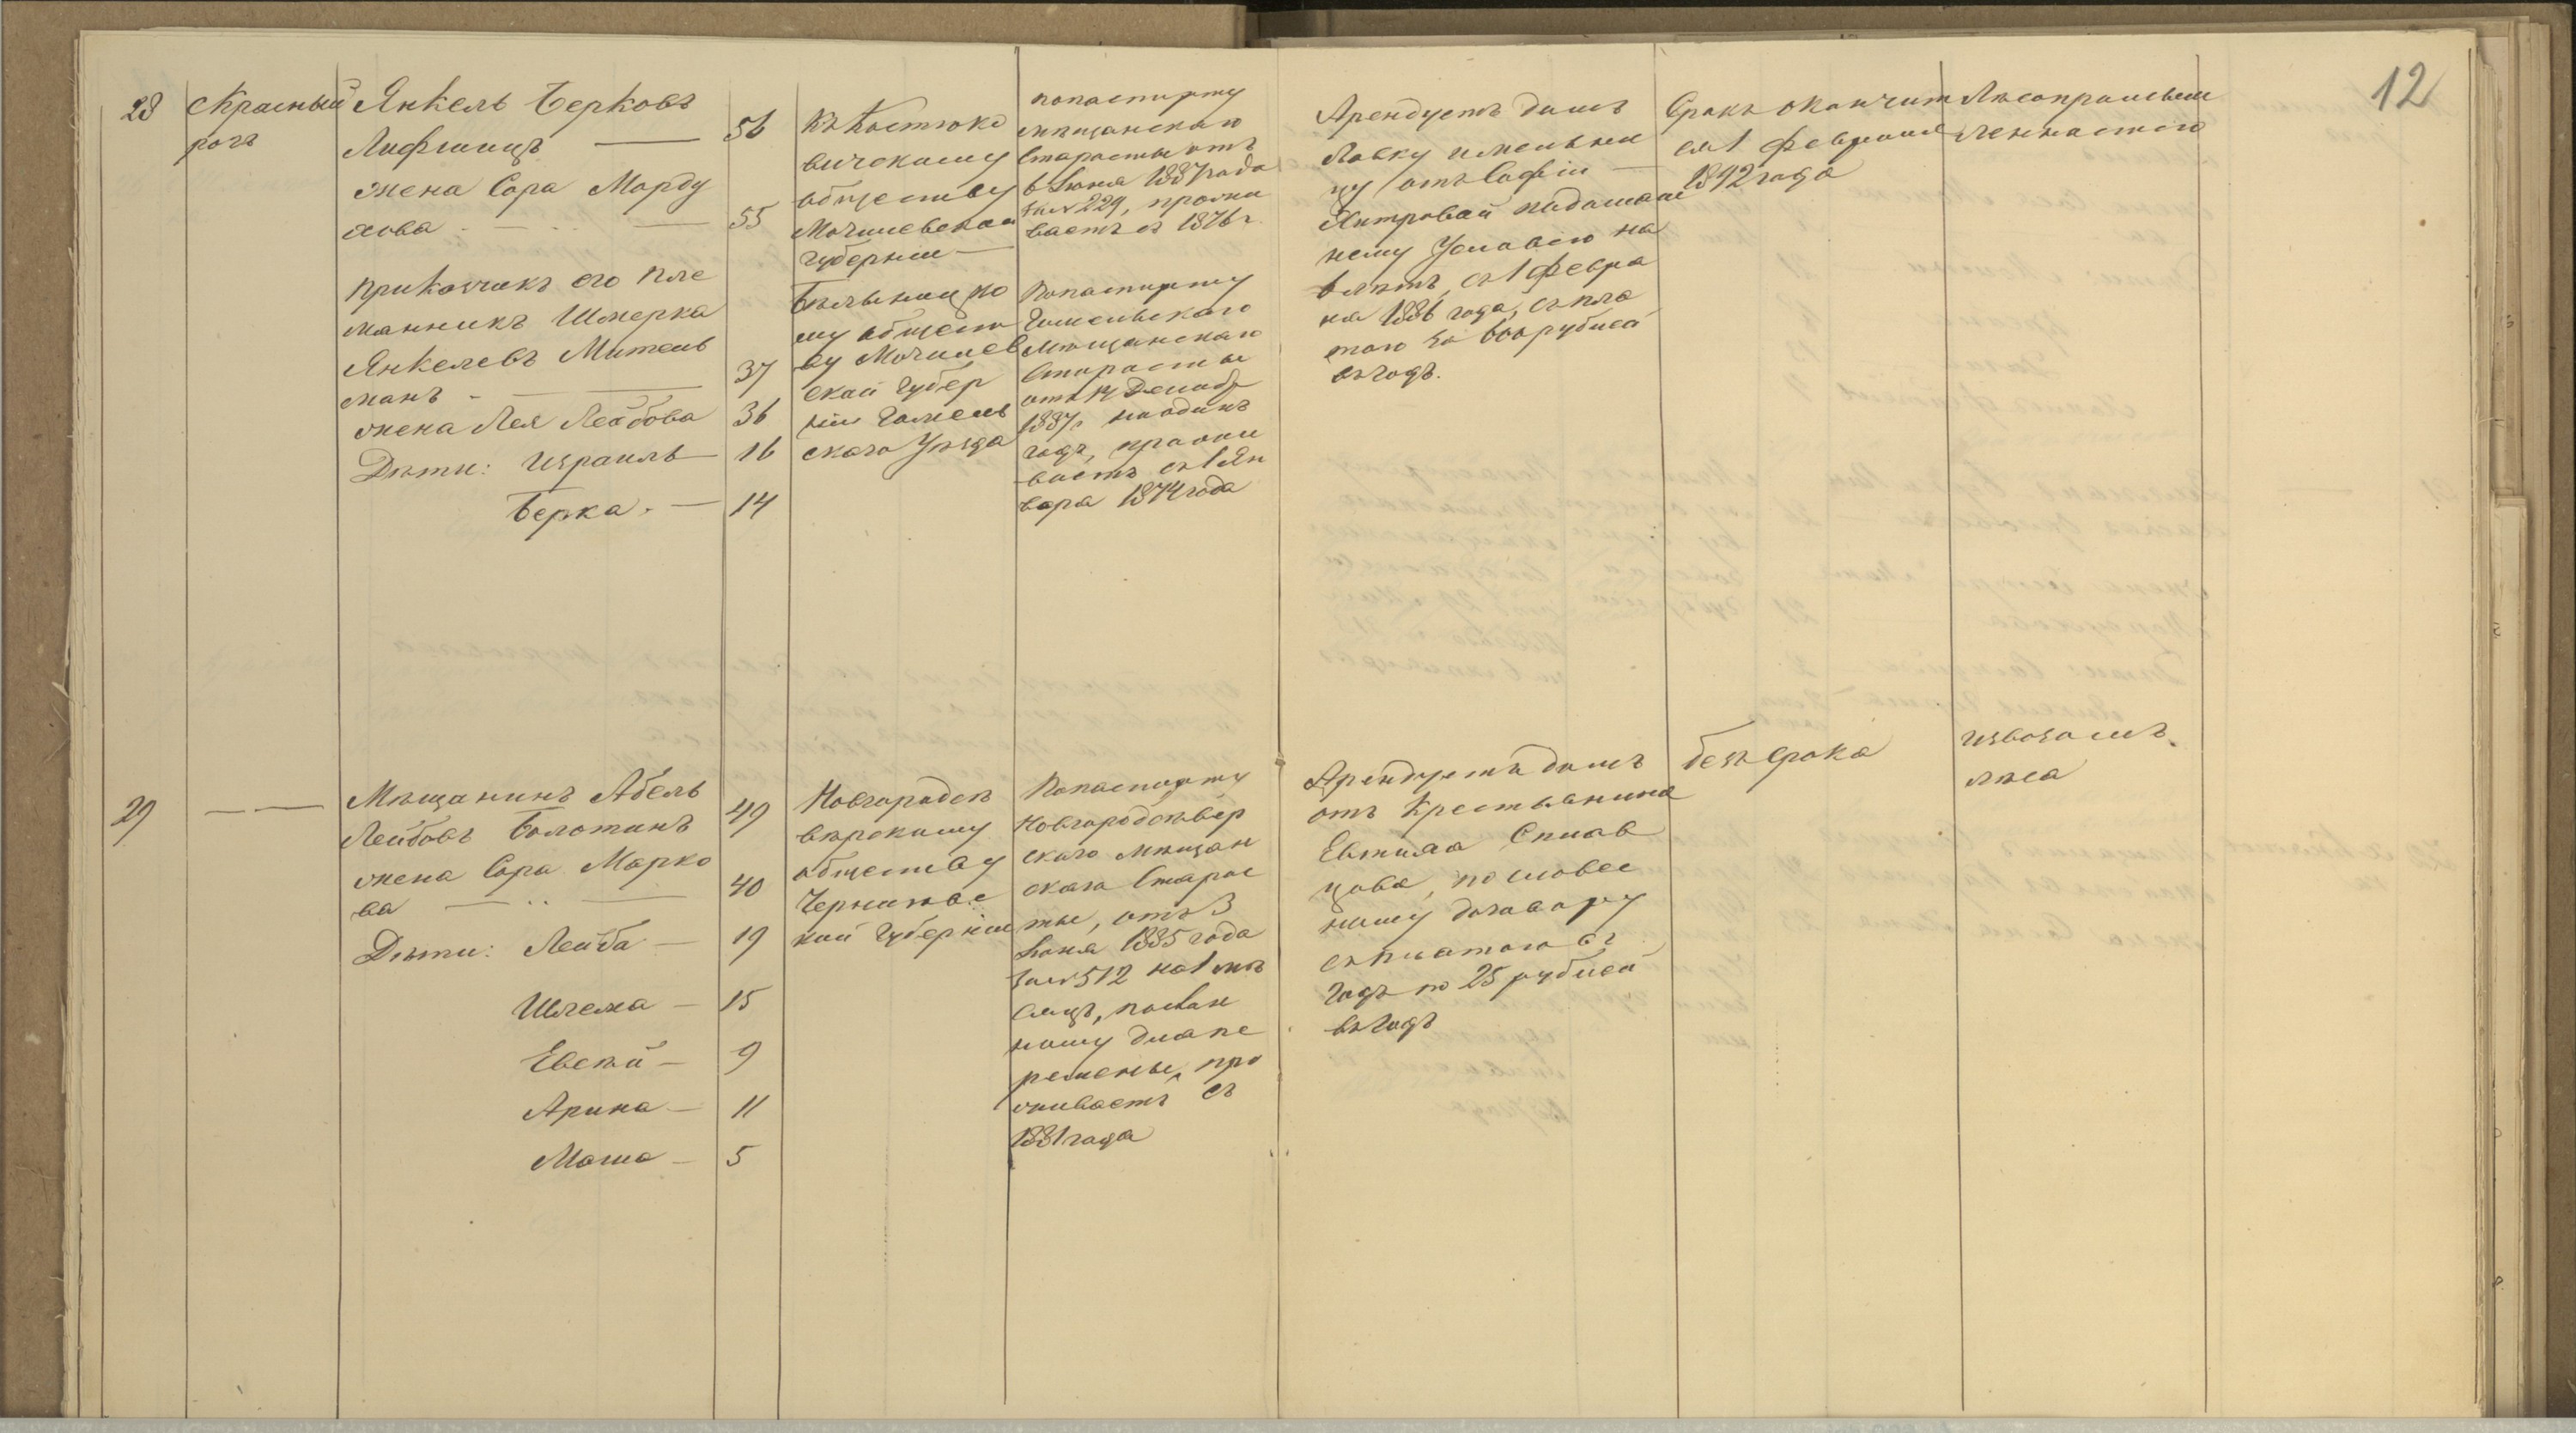 12
28
Красный
рогъ
Янкель Берковъ
Лифшицъ — 56
жена Сора Морду
хова — 55
Прикащикъ его пле
манникъ Шмерка
Янкелевъ Мительс
манъ — 37
жена Лея Лейбова 36
Дѣти: Израиль — 16
Берка. — 14
Къ Костюко
вичскому
обществу
Могилевской
Губерніи —
Бѣлыницко
му общест
ву Могилев
ской Губер
ніи Гомель
скаго Уѣзда
по паспорту
мѣщанскаго
Старосты отъ
6 Іюня 1887 года
за № 229, прожи
ваетъ съ 1876 г
По паспорту
Гомельскаго
мѣщанскаго
Старосты
отъ 14 Декабр
1887 г на одинъ
годъ, прожи
ваетъ съ 1 Ян
варя 1874 года
Арендуетъ домъ
Лавку и мельни
цу отъ Софіи —
Хитровой по домаш
нему Условію на
6 лѣтъ, съ 1 Февра
ля 1886 года, съ пла
тою за 600 рублей
въ годъ.
Срокъ окончит
ся 1 Февраля
1892 года
Лѣсопромыш
ленностію
29
— —
Мѣщанинъ Абель
Лейбовъ Болотинъ 49
жена Сора Марко
ва — 40
Дѣти: Лейба — 19
Шлема — 15
Евсѣй — 9
Арина — 11
Маша — 5
Новгородсѣ
вѣрскому
обществу
Чернигово
кой Губерніи
По паспорту
Новгородсѣвер
скаго мѣщан
скаго Старос
ты, отъ 3
Іюня 1885 года
за № 512 на 1 мѣ
сяцъ, послан
ному для пе
ремены, про
живаетъ съ
1881 года
Арендуетъ домъ
отъ Крестьянина
Евтиха
цова, по словес
ному договору
съ платою въ
годъ по 25 рублей
въ годъ
безъ срока
извозомъ
лѣса